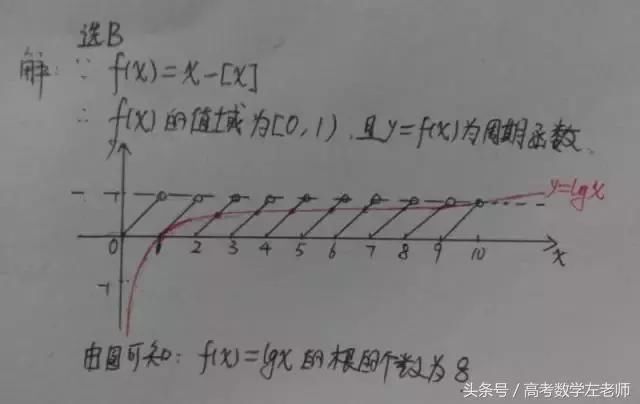 选B
解:∵ f(x)=x-[x]
∴ f(x)的值域为[0,1),且y=f(x)为周期函数.
y
1
y=lgx
0 1 2 3 4 5 6 7 8 9 10 x
-1
由图可知: f(x)=lgx的根的个数为8
头条号 / 高考数学左老师